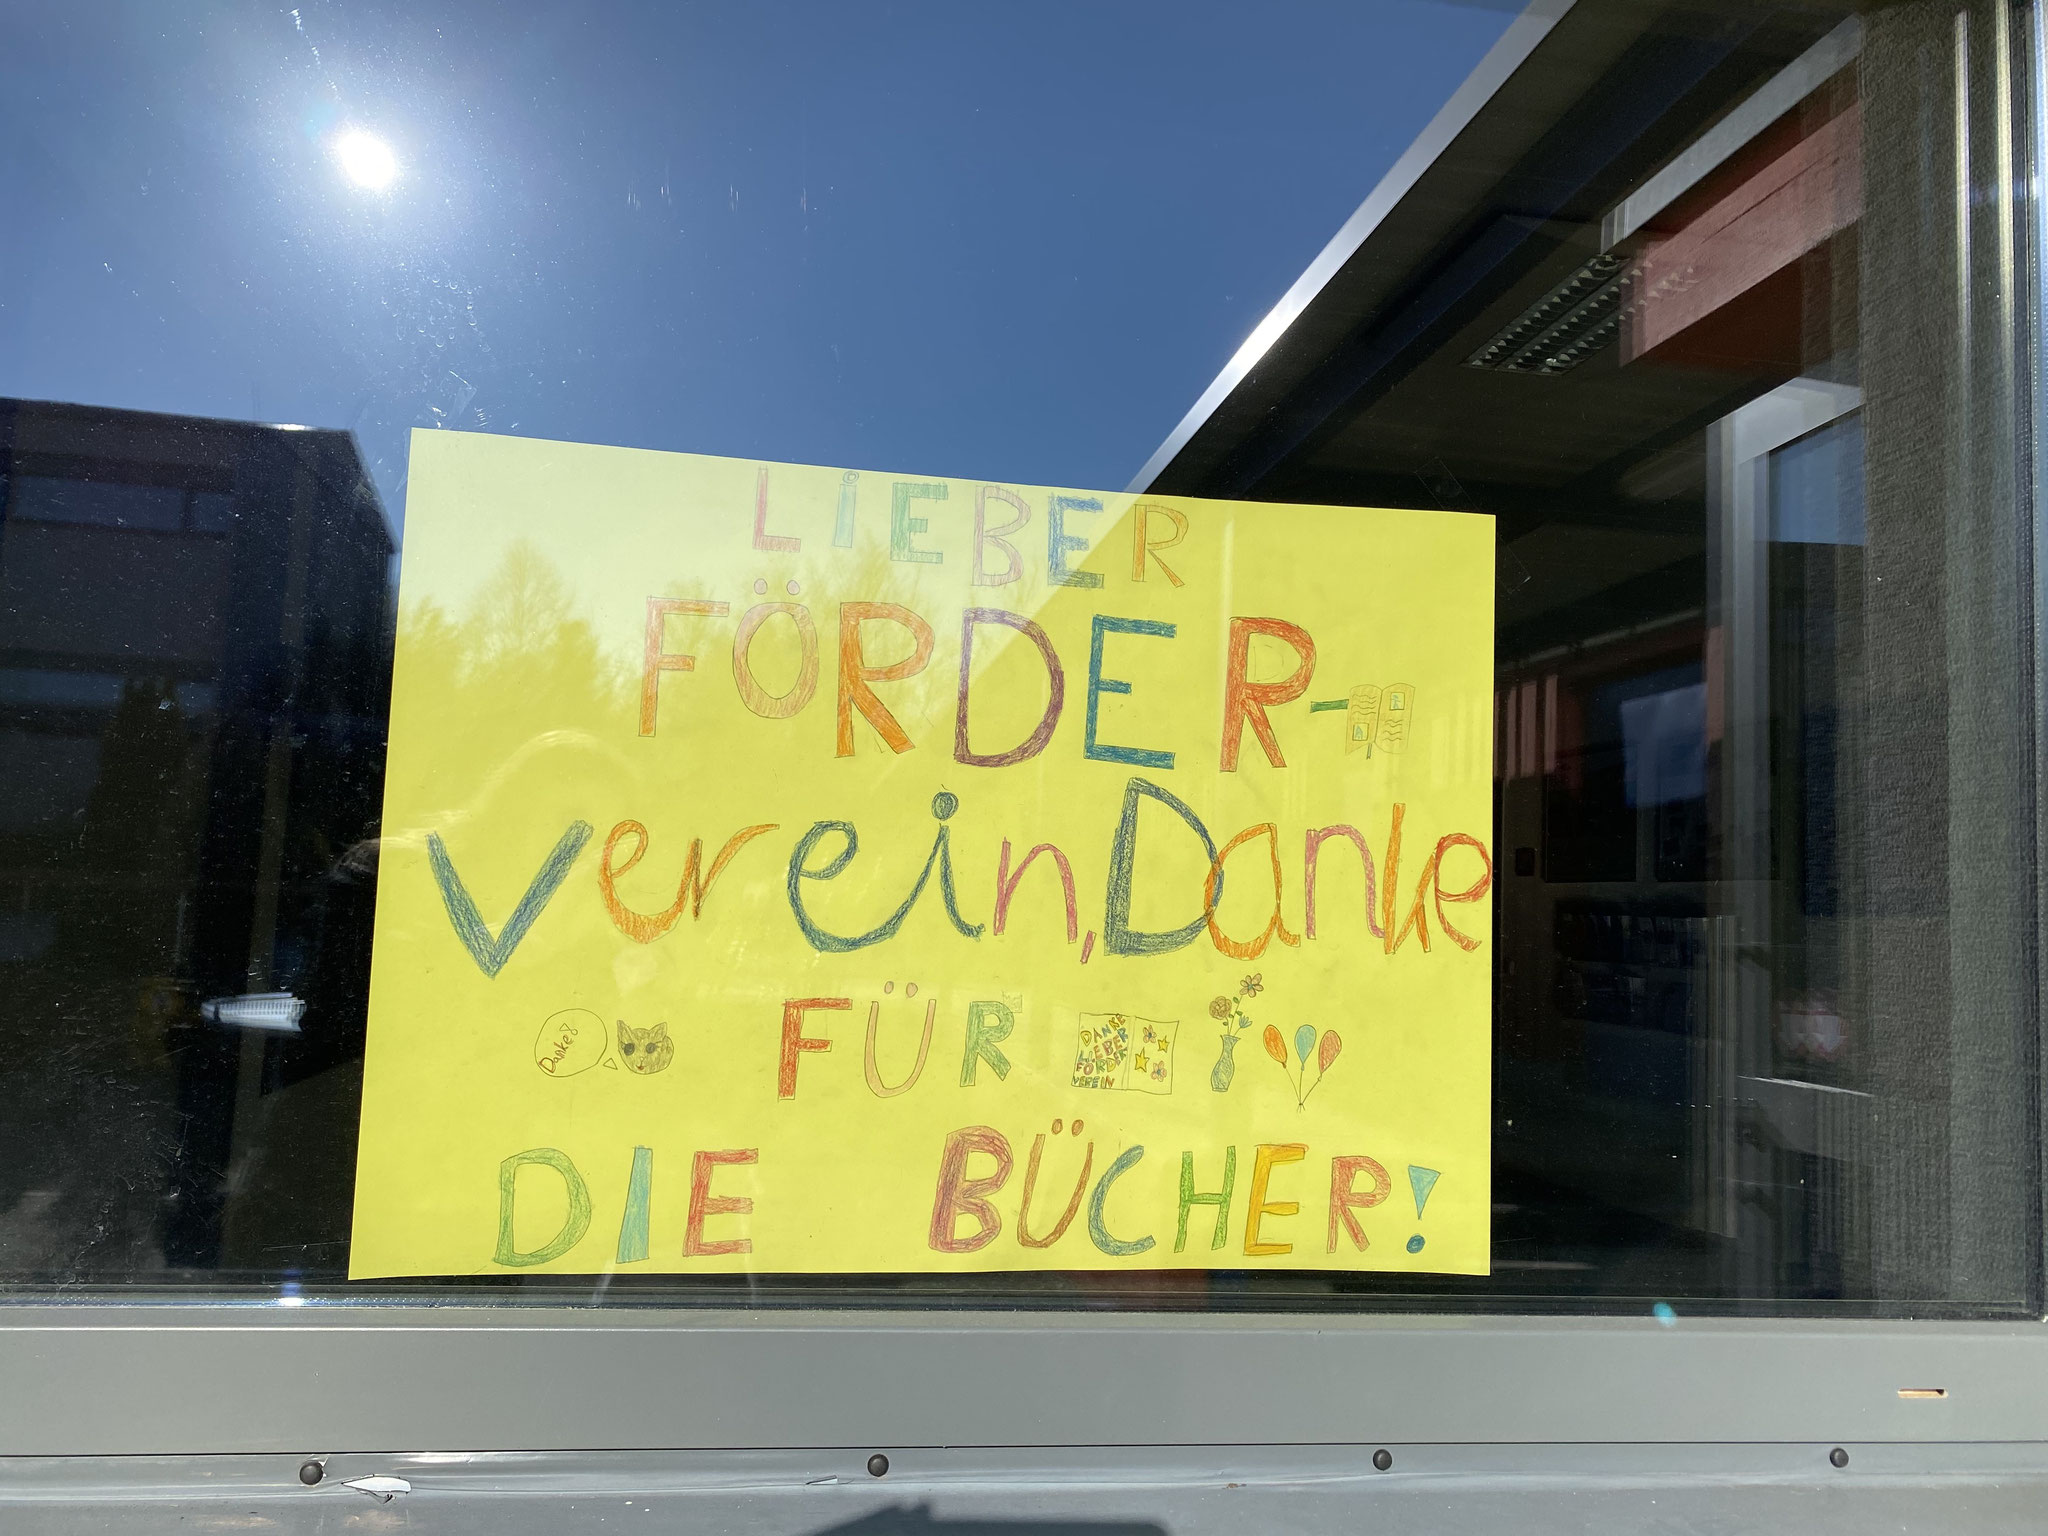 LiEBER
FÖRDER-
Verein, Danke
Danke!
FÜR
DANKE
LIEBER
FÖRDER
VEREIN
DIE BÜCHER!